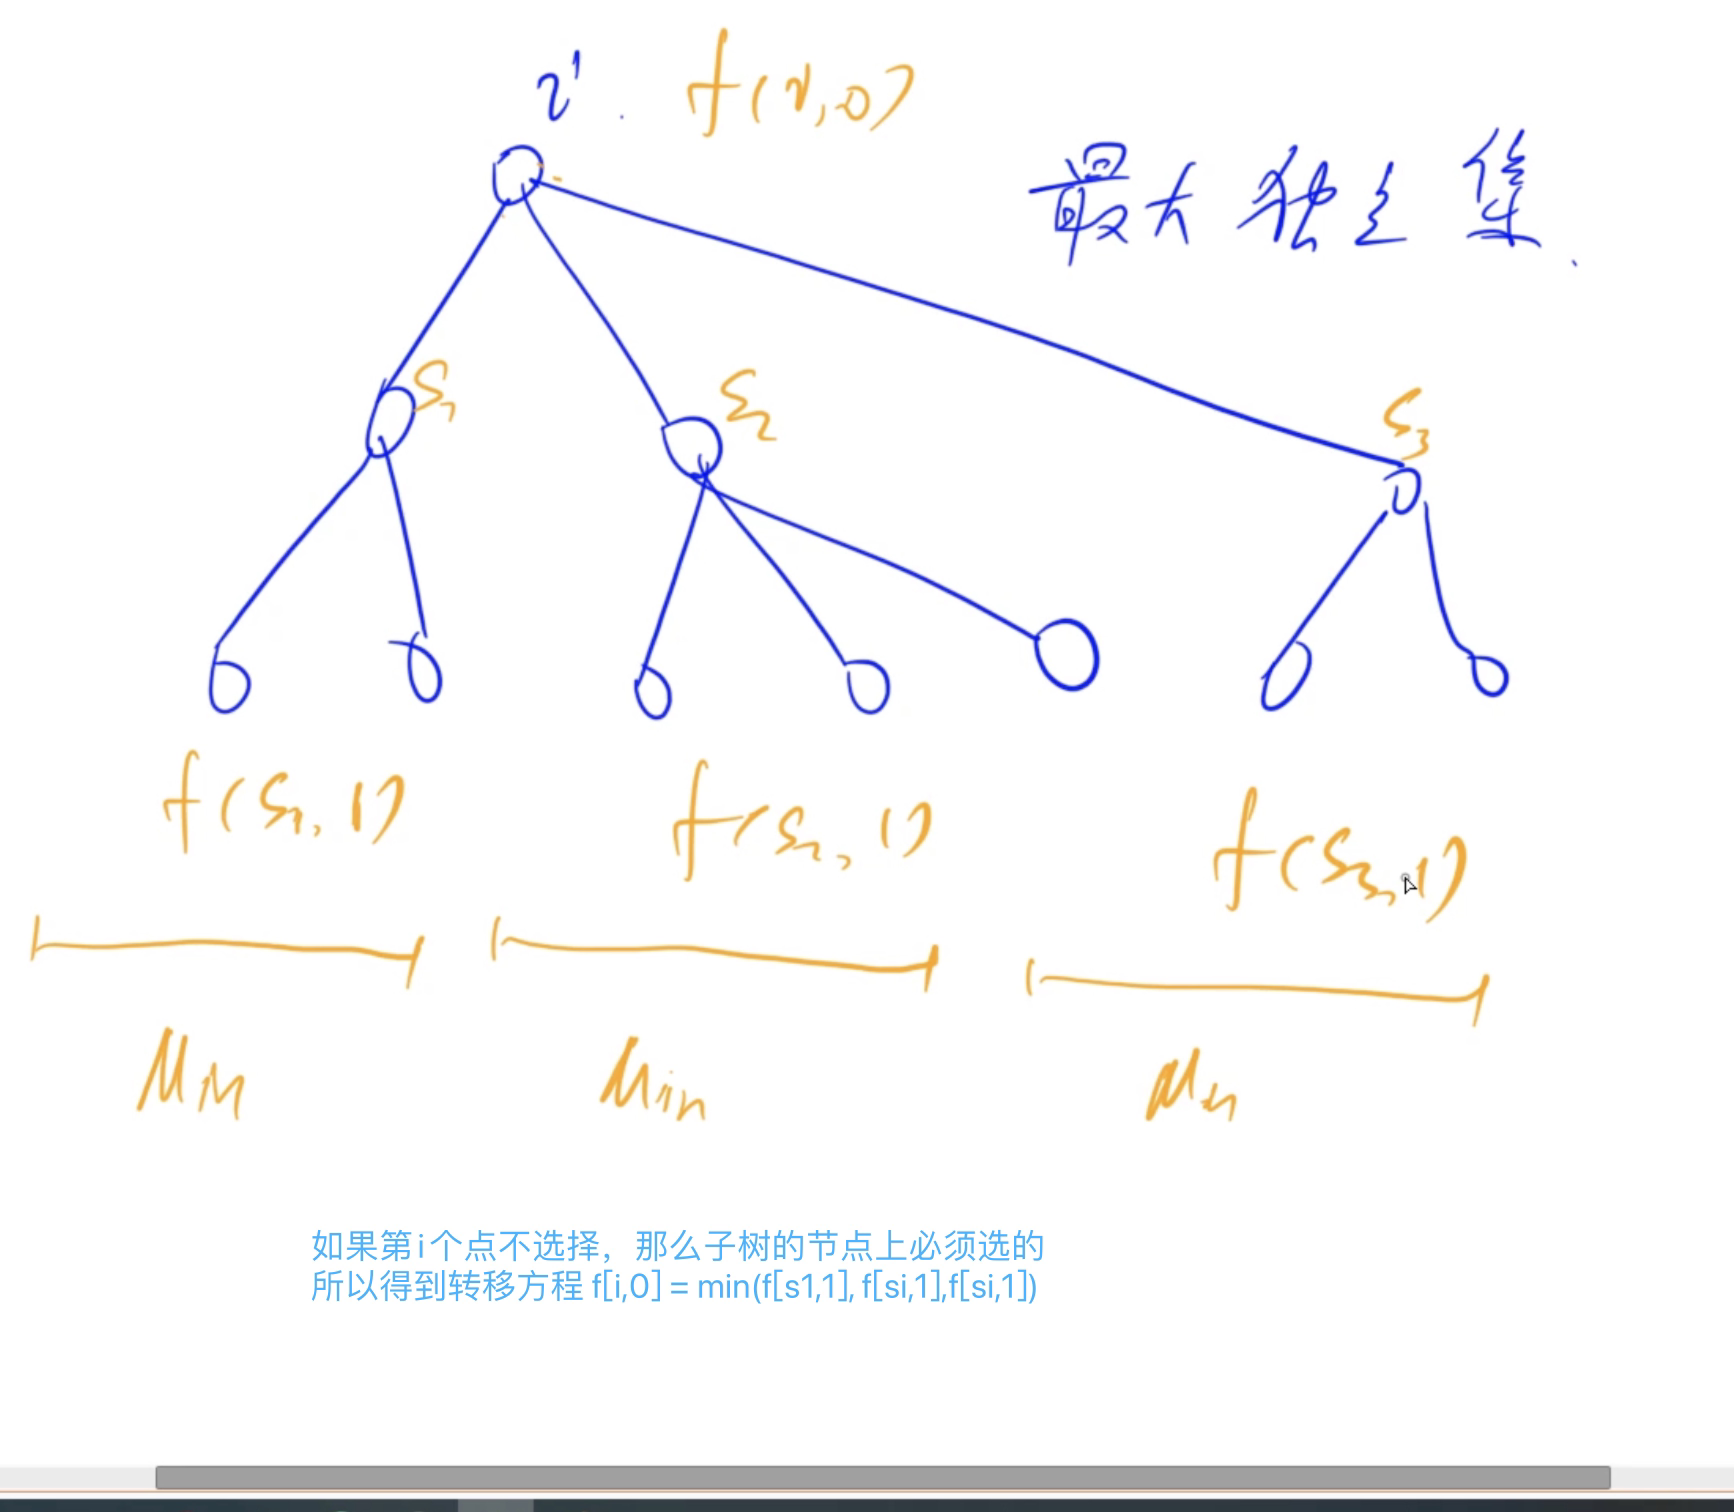 i. f(i,0)
最大独立集.
S1
S2
S3
f(S1,1) f(S2,1) f(S3,1)
Min Min Min
如果第i个点不选择，那么子树的节点上必须选的
所以得到转移方程 f[i,0] = min(f[s1,1], f[si,1],f[si,1])